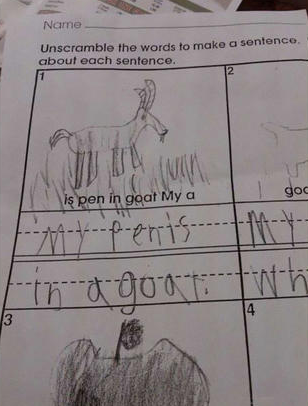 Name
Unscramble the words to make a sentence.
about each sentence.
1
2
is pen in goat My a
goa
My Penis
My
in a goat.
wh
3
4